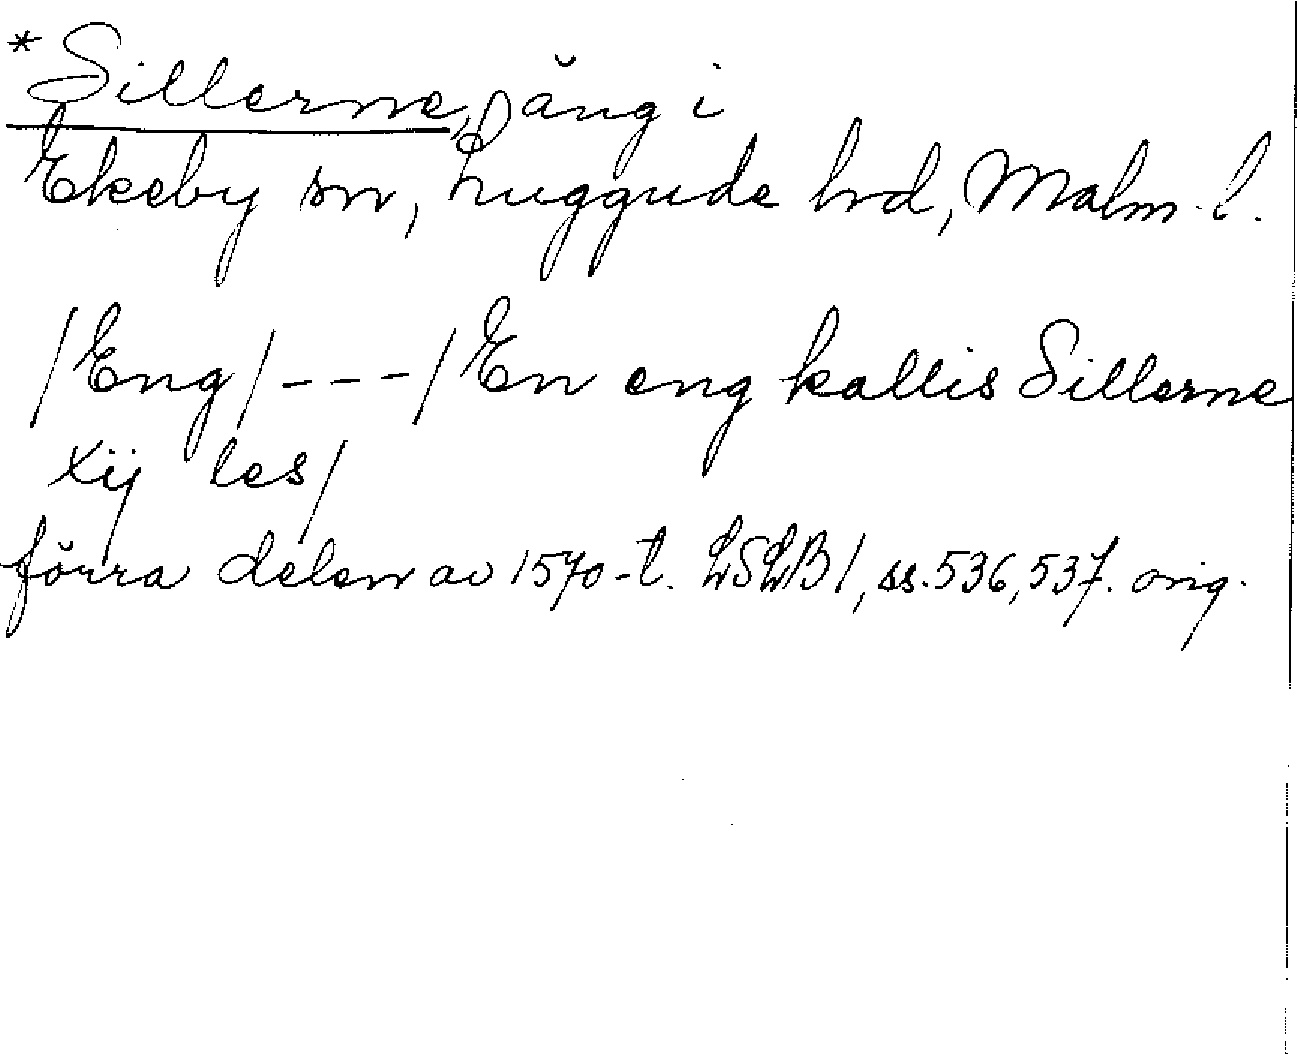 *Sillerne, äng i
Ekeby sn, Luggude hd, Malm. l.
/Eng/ - - - /En eng kallis Sillerne
xij les/
förra delen av 1570-t. LSLB 1, ss. 536, 537. orig.